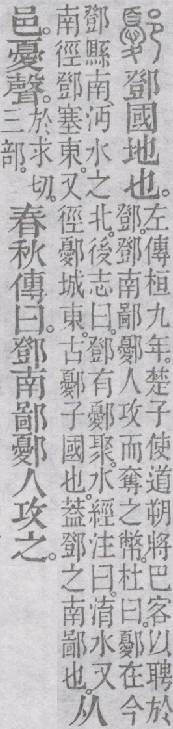 鄾 鄧國地也。左傳桓九年。楚子使道朔將巴客以聘於
鄧。鄧南鄙鄾人攻而奪之幣。杜曰。鄾在今
鄧縣南沔水之北。後志曰。鄧有鄾聚。水經注曰。淯水又
南徑鄧塞東。又徑鄾城東。古鄾子國也。葢鄧之南鄙也。从
邑。憂聲。於求切。
三部。春秋傳曰。鄧南鄙鄾人攻之。